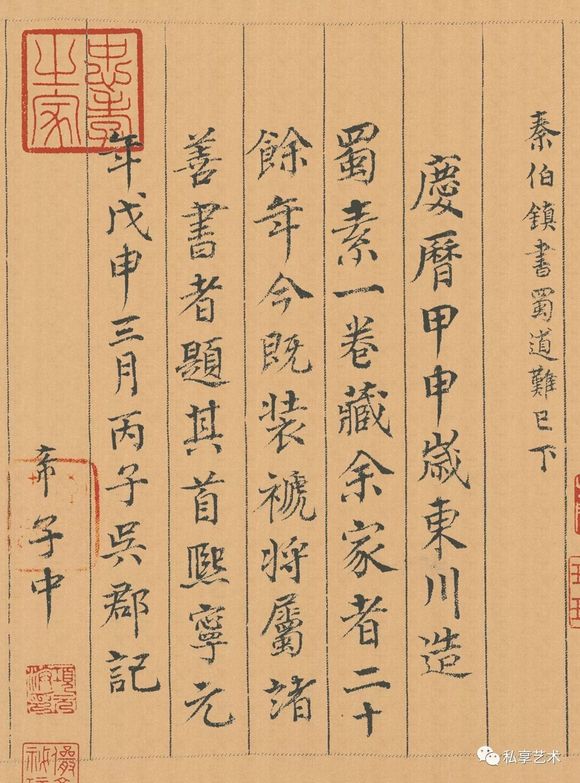 秦伯鎮書蜀道難已下
慶曆甲申歲東川造
蜀素一卷藏余家者二十
餘年今既裝褫將屬諸
善書者題其首熙寧元
年戊申三月丙子吳郡記
忠孝之家
希子中
項元汴印
私享艺术